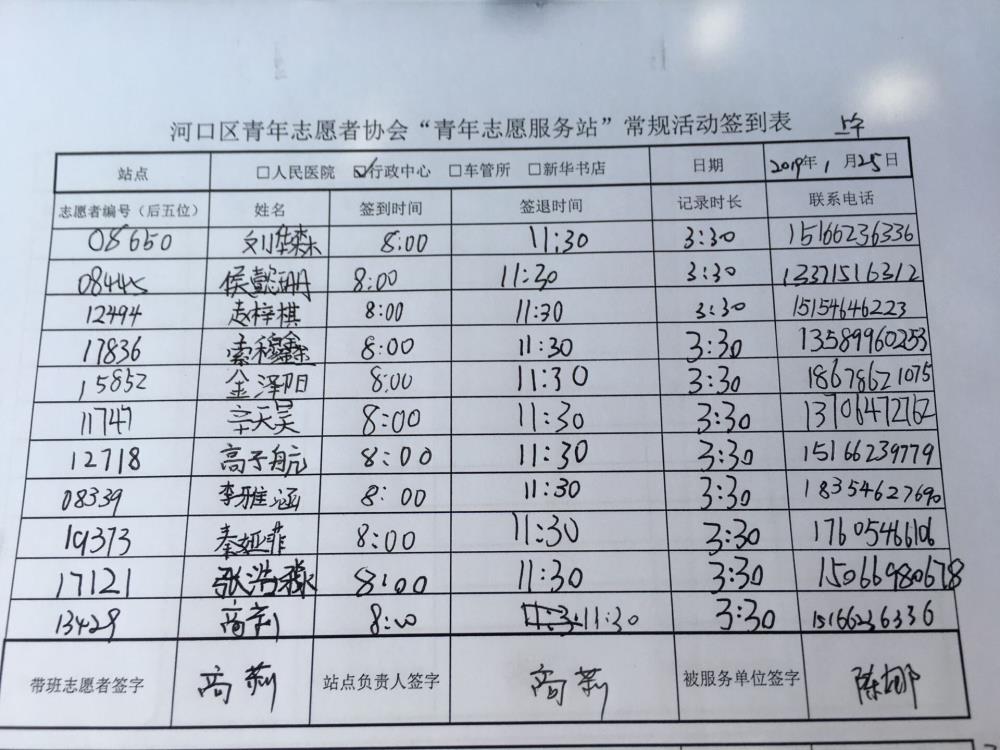 河口区青年志愿者协会“青年志愿服务站”常规活动签到表 上午
站点 □人民医院 ☑行政中心 □车管所 □新华书店 日期 2019年1月25日
志愿者编号（后五位） 姓名 签到时间 签退时间 记录时长 联系电话
08650 刘华森 8:00 11:30 3:30 15166236336
08445 侯懿珊 8:00 11:30 3:30 13371516312
12494 赵梓棋 8:00 11:30 3:30 15154646223
17836 索穆鑫 8:00 11:30 3:30 13589960253
15852 金泽阳 8:00 11:30 3:30 18678621075
11747 辛天昊 8:00 11:30 3:30 13706472762
12718 高子航 8:00 11:30 3:30 15166239779
08339 李雅涵 8:00 11:30 3:30 18354627690
19373 秦娅菲 8:00 11:30 3:30 17605466106
17121 张浩淼 8:00 11:30 3:30 15066980678
13429 高莉 8:00 11:30 3:30 15166236336
带班志愿者签字 高莉 站点负责人签字 高莉 被服务单位签字 陈娜